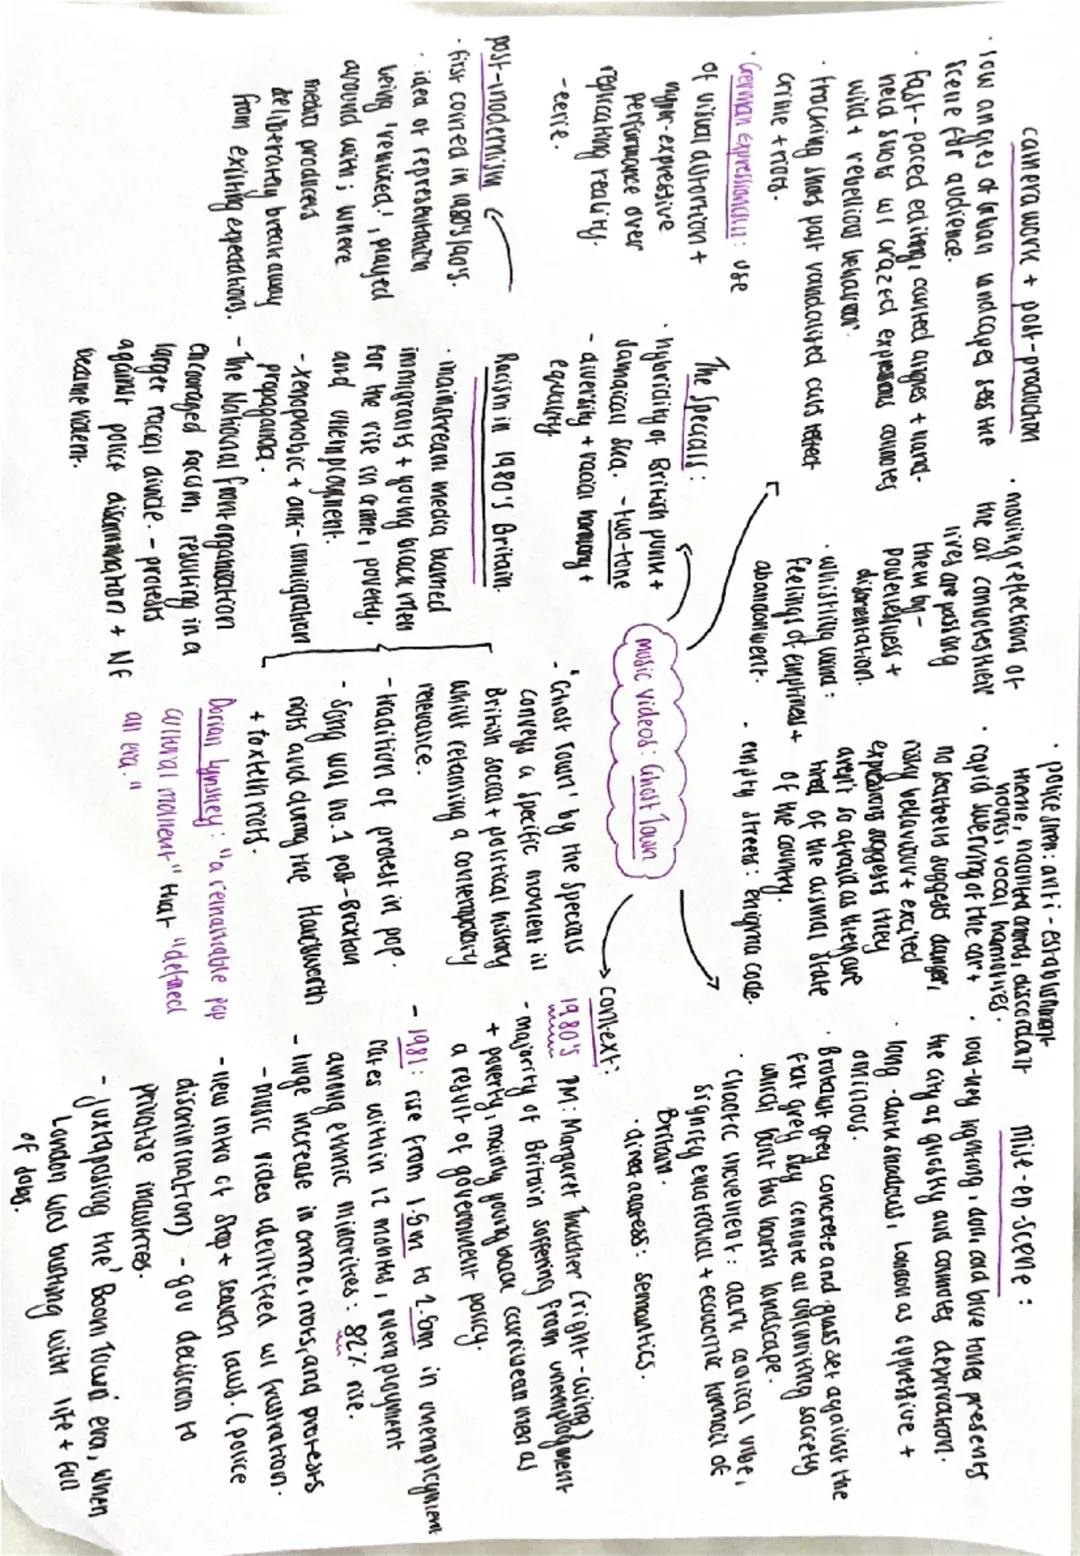 camera work + post-production
· low angles of urban landscapes sets the
scene for audience.
· fast-paced editing, canted angles + hand-
held shots w/ crazed expressions connotes
wild + rebellious behavior.
· tracking shots past vandalised cars reflect
crime + riots.
German Expressionism: use
of visual distortion +
hyper-expressive
performance over
replicating reality.
- eerie.
post-modernism
· first coined in 1980s/90s.
· idea of representation
being 'remixed', played
around with; where
media producers
deliberately break away
from existing expectations.
· moving reflections of
the car connotes their
lives are passing
them by -
powerlessness +
disorientation.
· whistling wind:
feelings of emptiness +
abandonment.
The Specials:
· hybridity of British punk +
Jamaican Ska. - two-tone
- diversity + racial harmony +
equality.
Racism in 1980's Britain.
· mainstream media blamed
immigrants + young black men
for the rise in crime, poverty,
and unemployment.
- xenophobic + anti-immigration
propaganda.
- The National front organisation
encouraged racism, resulting in a
larger racial divide. - protests
against police discrimination + NF
became violent.
· police siren: anti-establishment
theme, haunted chords, discordant
horns, vocal harmonies.
· rapid swerving of the car +
no seatbelts suggests danger,
risky behaviour + excited
expressions suggests they
aren't so afraid as they are
tired of the dismal state
of the country.
· empty streets: enigma code.
music videos: Ghost Town
- 'Ghost Town' by the Specials
conveys a specific moment in
British social + political history
whilst retaining a contemporary
relevance.
- tradition of protest in pop.
- Song was no.1 post-Brixton
riots and during the Handsworth
+ toxteth riots.
Dorian Lynskey: "a remarkable pop
cultural moment" that "defined
an era."
Mise-en-scene:
· low-key lighting, dour cold blue tones presents
the city as ghostly and connotes deprivation.
· long dark shadows, London as oppressive +
ominous.
· Brutalist grey concrete and glass set against the
flat grey sky connote an uninviting society
which built this harsh landscape.
· Chaotic movement: dark comical vibe,
signify emotional + economic turmoil of
Britain.
· direct address: semantics.
Context:
1980's PM: Margaret Thatcher (right-wing)
- majority of Britain suffering from unemployment
+ poverty, mainly young black carribean men as
a result of government policy.
- 1981: rise from 1.5m to 2.5m in unemployment
rates within 12 months, unemployment
among ethnic minorities: 82% rise.
- huge increase in crime, riots, and protests
- music video identified w/ frustration.
- new intro of stop + search laws. (police
discrimination) - gov decision to
privatise industries.
- juxtaposing the 'Boom Town' era, when
London was bustling with life + full
of jobs.